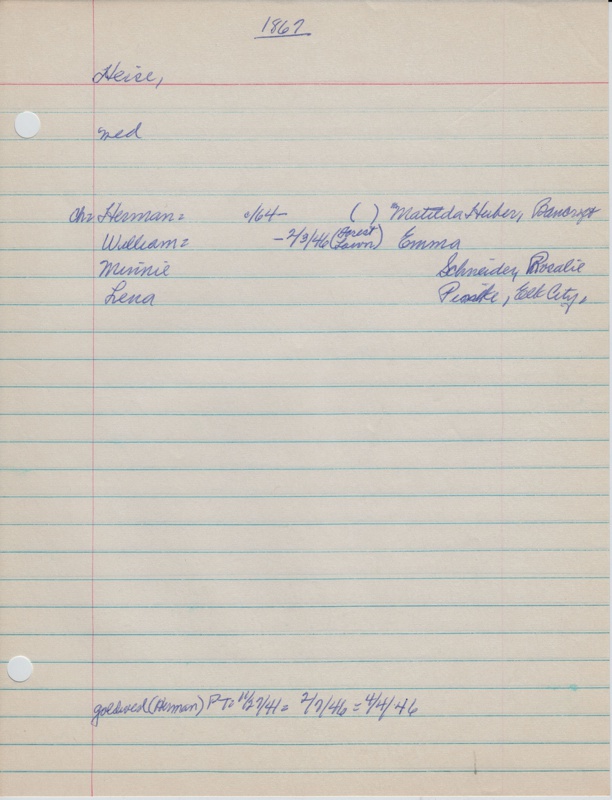 1867
Heise,
med
ch= Herman= 1/64- ( ) Matilda Huber, Bancroft
William= - 2/3/46 (Forest Lawn) Emma
Minnie Schneider, Rosalie
Lena Elk City,
goldwed (Herman) PT= 11/27/41= 2/7/46= 4/4/46